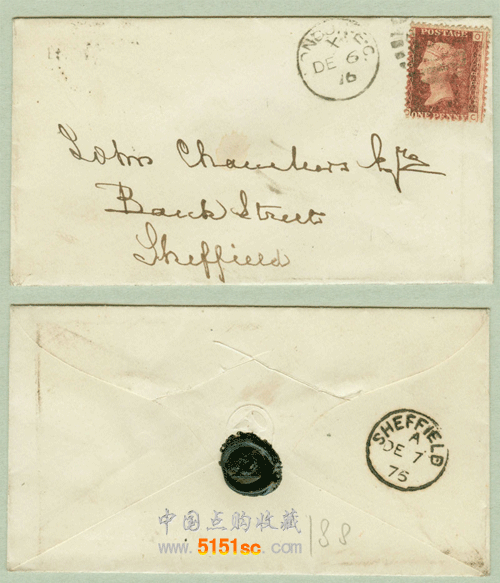 LONDON E.C.
H
DE 6
76
POSTAGE
ONE PENNY
Chambers Esqre
Bank Street
Sheffield
SHEFFIELD
A
DE 7
75
中国点购收藏
www.5151sc.com
188